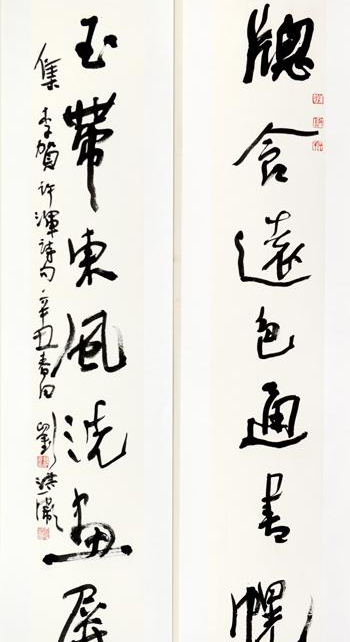 牕含遠色通書幌
玉帶東風洗畫屏
集李賀許渾詩句辛丑春日劉